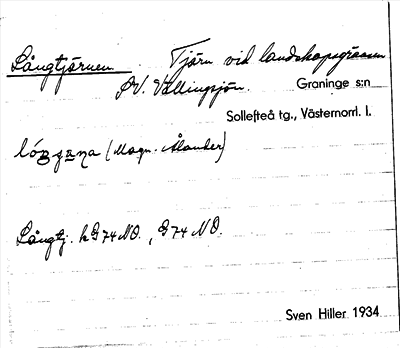 Långtjärnen Tjärn vid landskapsgränsen
NV. Vällingsjön. Graninge s:n
Sollefteå tg., Västernorrl. l.
(Magn. Ålander)
Långtj. k G74 NO., G74 NO.
Sven Hiller 1934